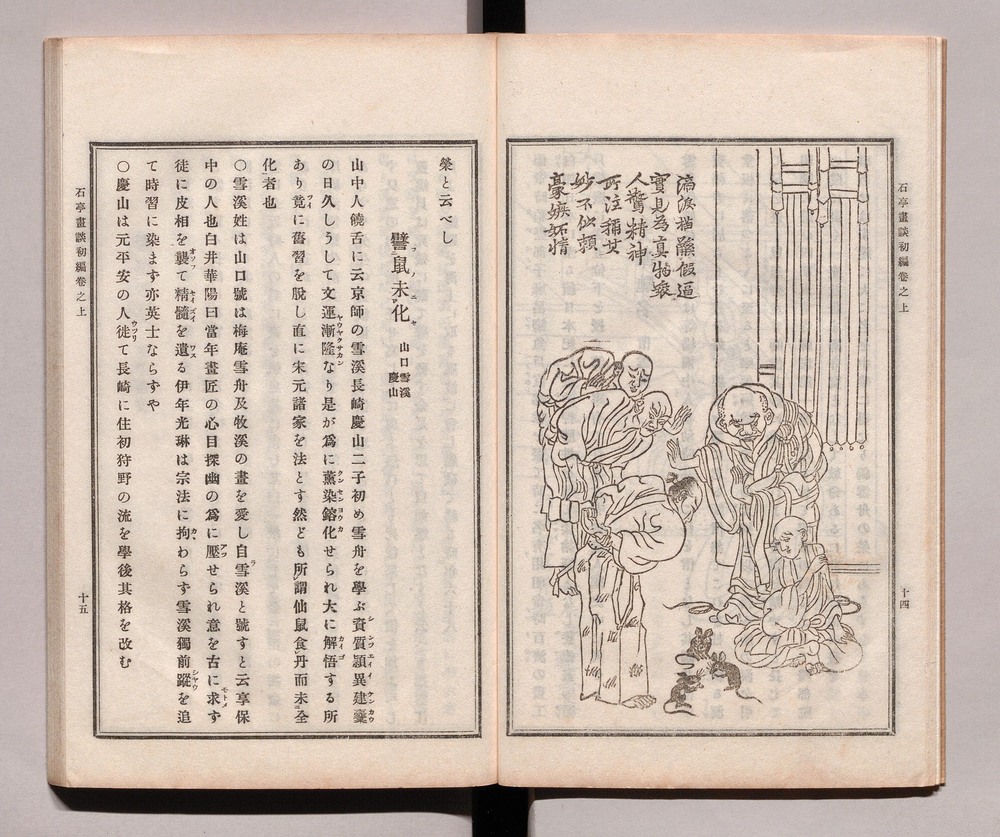 石亭畫談初編卷之上
十四
滴淚描鼷假逼
實見為真物衆
人驚精神
所注稱其
妙不似賴
豪嫉妬情
榮と云べし
譬鼠未化
山口雪溪
慶山
山中人饒舌に云京師の雪溪長崎慶山二子初め雪舟を學ぶ資質頴異建橐
の日久しうして文運漸隆なり是が爲に薰染鎔化せられ大に解悟する所
あり竟に舊習を脫し直に宋元諸家を法とす然ども所謂仙鼠食丹而未全
化者也
〇雪溪姓は山口號は梅庵雪舟及牧溪の畫を愛し自雪溪と號すと云享保
中の人也白井華陽曰當年畫匠の心目探幽の爲に壓せられ意を古に求ず
徒に皮相を襲て精髓を遺る伊年光琳は宗法に拘わらす雪溪獨前蹤を追
て時習に染まず亦英士ならすや
〇慶山は元平安の人徒て長崎に住初狩野の流を學後其格を改む
石亭畫談初編卷之上
十五